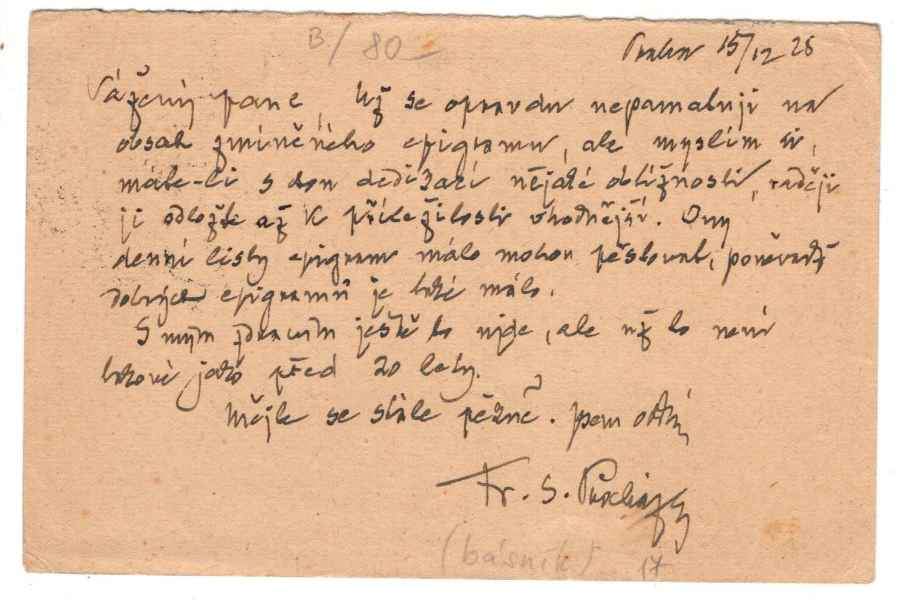 B/80–
Praha 15/12 28
Vážený pane Už se opravdu nepamatuji na
obsah zmíněného epigramu, ale myslím si,
máte-li s tou dedikací nějaké obtížnosti, raději
ji odložte až k příležitosti vhodnější. Ony
denní listy epigram málo mohou pěstovat, poněvadž
dobrých epigramů je také málo.
S mým zdravím ještě to ujde, ale už to není
takové jako před 20 lety.
Mějte se stále pěkně. Jsem
Fr. S. Procházka
(básník)